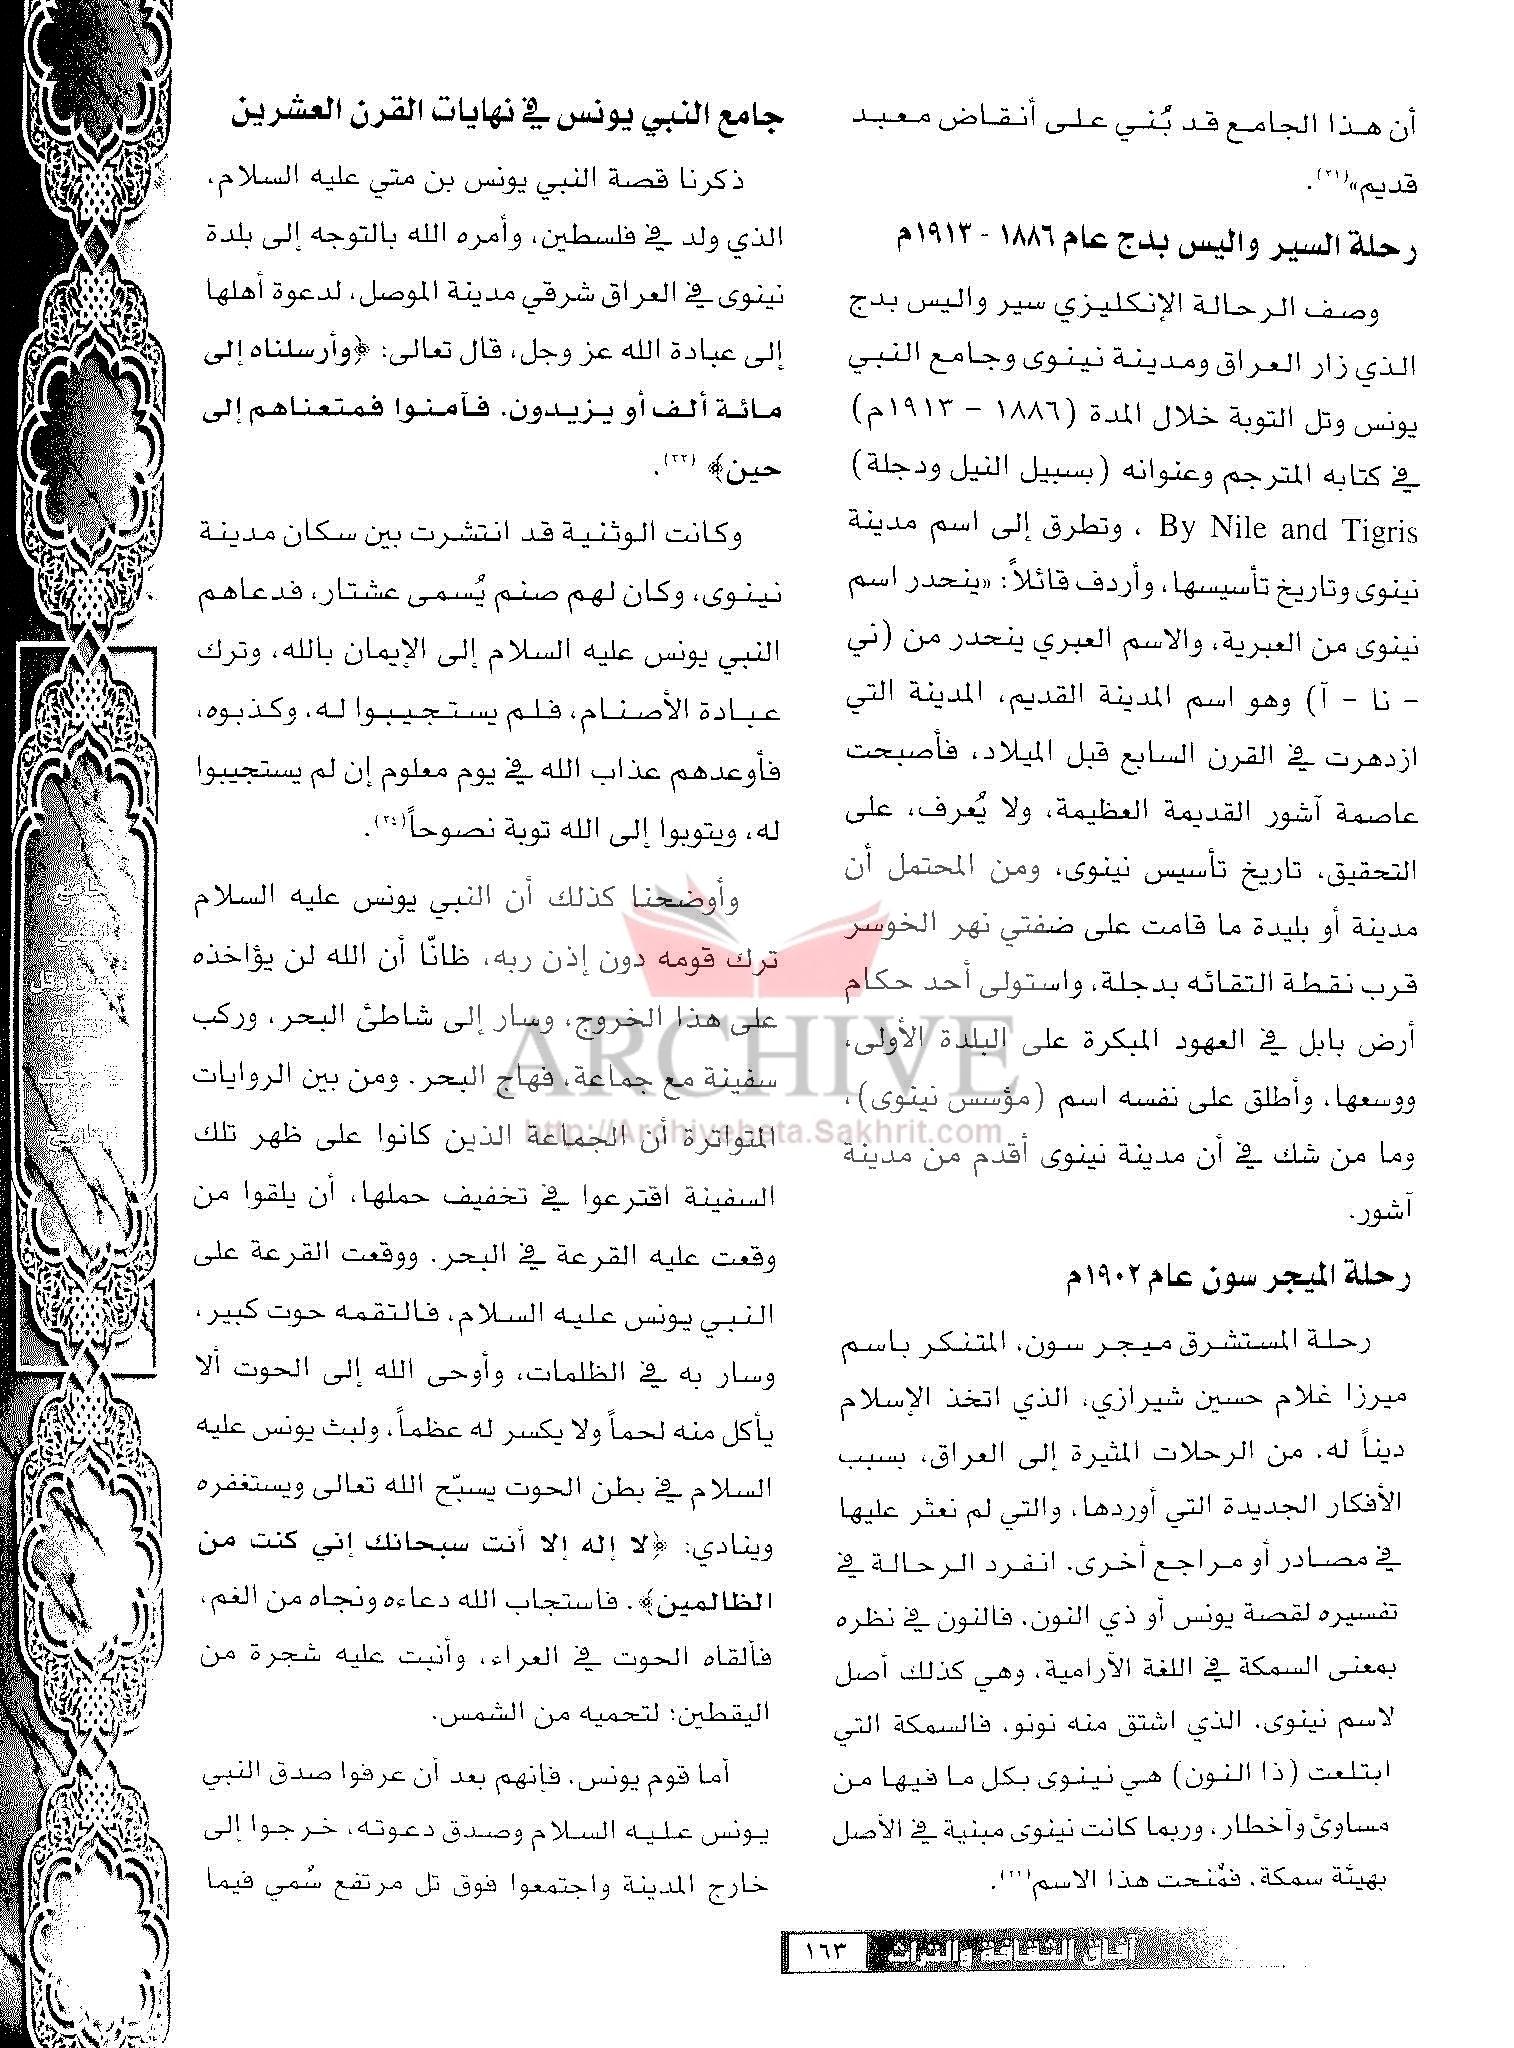 أن هذا الجامع قد بُني على أنقاض معبد
قديم»(٢١).
رحلة السير واليس بدج عام ١٨٨٦ - ١٩١٣م
وصف الرحالة الإنكليزي سير واليس بدج
الذي زار العراق ومدينة نينوى وجامع النبي
يونس وتل التوبة خلال المدة (١٨٨٦ - ١٩١٣م)
في كتابه المترجم وعنوانه (بسبيل النيل ودجلة)
By Nile and Tigris ، وتطرق إلى اسم مدينة
نينوى وتاريخ تأسيسها، وأردف قائلاً: «ينحدر اسم
نينوى من العبرية، والاسم العبري ينحدر من (ني
- نا - آ) وهو اسم المدينة القديم، المدينة التي
ازدهرت في القرن السابع قبل الميلاد، فأصبحت
عاصمة آشور القديمة العظيمة، ولا يُعرف، على
التحقيق، تاريخ تأسيس نينوى، ومن المحتمل أن
مدينة أو بليدة ما قامت على ضفتي نهر الخوسر
قرب نقطة التقائه بدجلة، واستولى أحد حكام
أرض بابل في العهود المبكرة على البلدة الأولى،
ووسعها، وأطلق على نفسه اسم (مؤسس نينوى)،
وما من شك في أن مدينة نينوى أقدم من مدينة
آشور.
رحلة الميجر سون عام ١٩٠٢م
رحلة المستشرق ميجر سون، المتنكر باسم
ميرزا غلام حسين شيرازي، الذي اتخذ الإسلام
ديناً له. من الرحلات المثيرة إلى العراق، بسبب
الأفكار الجديدة التي أوردها، والتي لم نعثر عليها
في مصادر أو مراجع أخرى. انفرد الرحالة في
تفسيره لقصة يونس أو ذي النون. فالنون في نظره
بمعنى السمكة في اللغة الآرامية، وهي كذلك أصل
لاسم نينوى. الذي اشتق منه نونو، فالسمكة التي
ابتلعت (ذا النون) هي نينوى بكل ما فيها من
مساوئ وأخطار، وربما كانت نينوى مبنية في الأصل
بهيئة سمكة، فمُنحت هذا الاسم(٢٢).
جامع النبي يونس في نهايات القرن العشرين
ذكرنا قصة النبي يونس بن متي عليه السلام،
الذي ولد في فلسطين، وأمره الله بالتوجه إلى بلدة
نينوى في العراق شرقي مدينة الموصل، لدعوة أهلها
إلى عبادة الله عز وجل، قال تعالى: ﴿وأرسلناه إلى
مائة ألف أو يزيدون. فآمنوا فمتعناهم إلى
حين﴾ (٢٣).
وكانت الوثنية قد انتشرت بين سكان مدينة
نينوى، وكان لهم صنم يُسمى عشتار، فدعاهم
النبي يونس عليه السلام إلى الإيمان بالله، وترك
عبادة الأصنام، فلم يستجيبوا له، وكذبوه،
فأوعدهم عذاب الله في يوم معلوم إن لم يستجيبوا
له، ويتوبوا إلى الله توبة نصوحاً(٢٤).
وأوضحنا كذلك أن النبي يونس عليه السلام
ترك قومه دون إذن ربه، ظانّا أن الله لن يؤاخذه
على هذا الخروج، وسار إلى شاطئ البحر، وركب
سفينة مع جماعة، فهاج البحر. ومن بين الروايات
المتواترة أن الجماعة الذين كانوا على ظهر تلك
السفينة اقترعوا في تخفيف حملها، أن يلقوا من
وقعت عليه القرعة في البحر. ووقعت القرعة على
النبي يونس عليه السلام، فالتقمه حوت كبير،
وسار به في الظلمات، وأوحى الله إلى الحوت ألا
يأكل منه لحماً ولا يكسر له عظماً، ولبث يونس عليه
السلام في بطن الحوت يسبّح الله تعالى ويستغفره
وينادي: ﴿لا إله إلا أنت سبحانك إني كنت من
الظالمين﴾. فاستجاب الله دعاءه ونجاه من الغم،
فألقاه الحوت في العراء، وأنبت عليه شجرة من
اليقطين؛ لتحميه من الشمس.
أما قوم يونس، فإنهم بعد أن عرفوا صدق النبي
يونس عليه السلام وصدق دعوته، خرجوا إلى
خارج المدينة واجتمعوا فوق تل مرتفع سُمي فيما
ARCHIVE
http://Archivebeta.Sakhrit.com
١٦٣ آفاق الثقافة والتراث